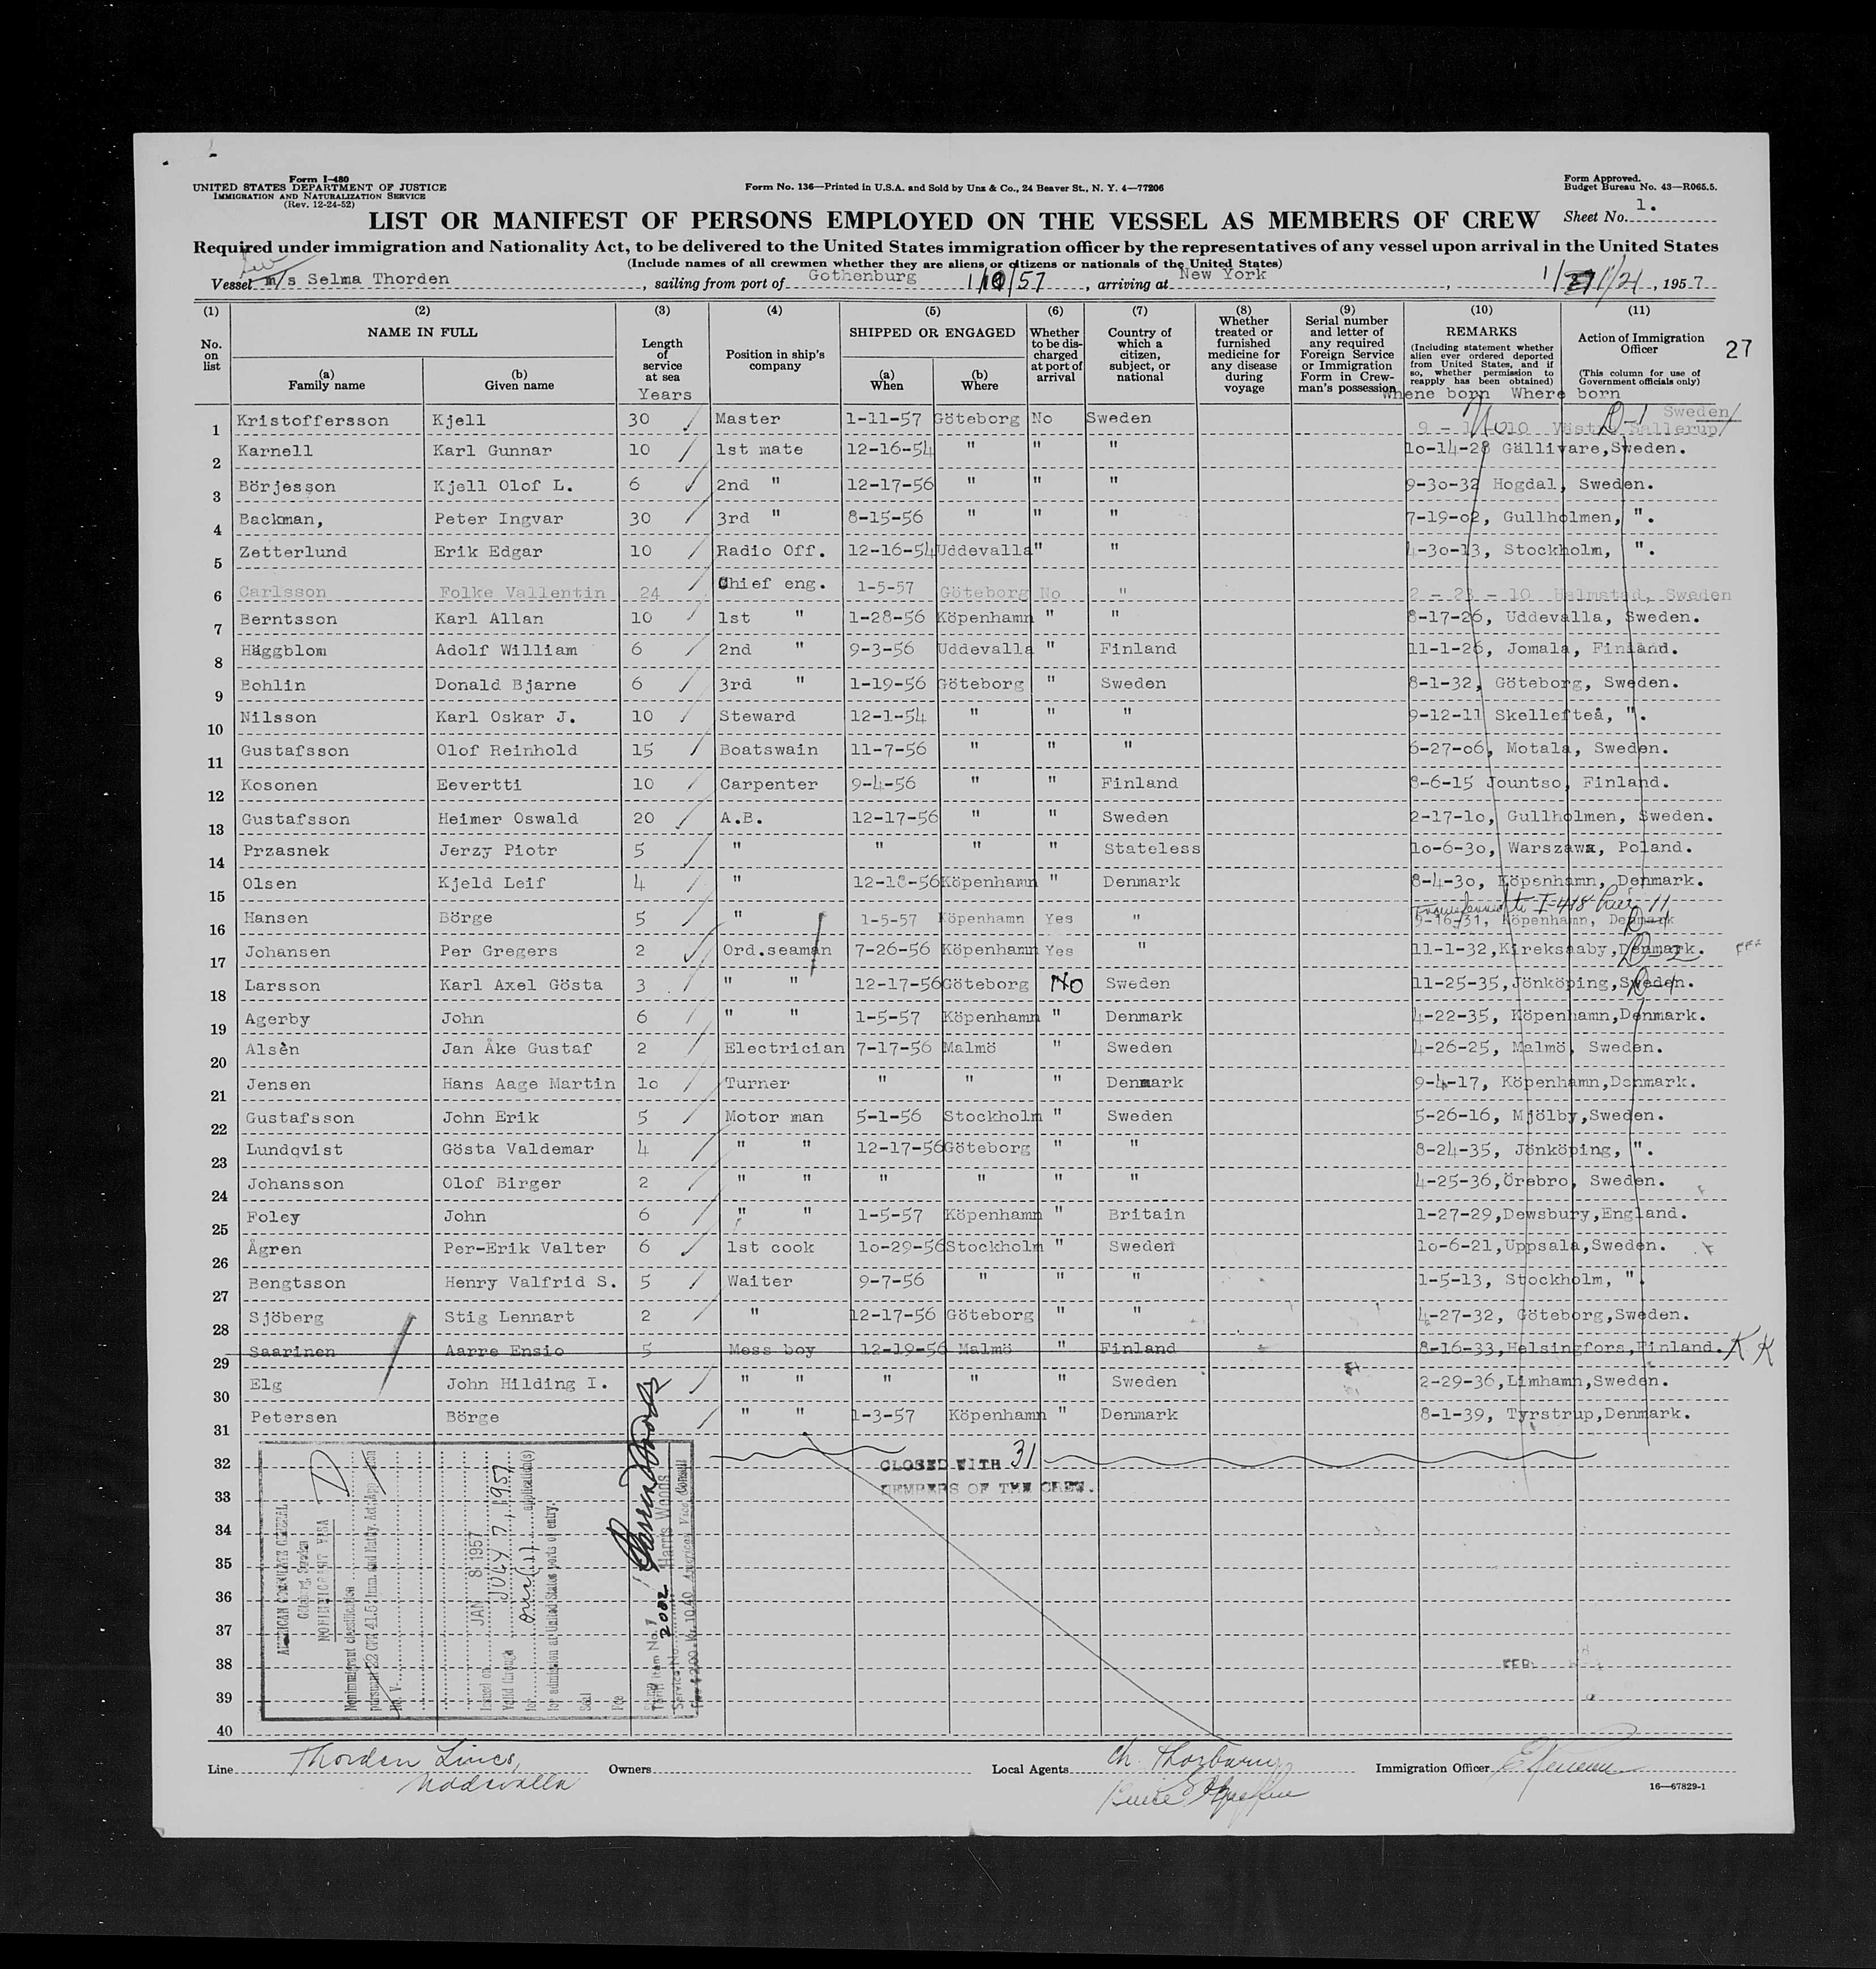 Form I-480
UNITED STATES DEPARTMENT OF JUSTICE
IMMIGRATION AND NATURALIZATION SERVICE
(Rev. 12-24-52)
Form No. 136—Printed in U.S.A. and Sold by Unz & Co., 24 Beaver St., N. Y. 4—77206
Form Approved.
Budget Bureau No. 43—R065.5.
LIST OR MANIFEST OF PERSONS EMPLOYED ON THE VESSEL AS MEMBERS OF CREW
Sheet No. 1.
Required under immigration and Nationality Act, to be delivered to the United States immigration officer by the representatives of any vessel upon arrival in the United States
(Include names of all crewmen whether they are aliens or citizens or nationals of the United States)
Vessel m/s Selma Thorden, sailing from port of Gothenburg 1/10/57, arriving at New York, 1/21, 1957
(1) No. on list
(2) NAME IN FULL
(a) Family name
(b) Given name
(3) Length of service at sea Years
(4) Position in ship's company
(5) SHIPPED OR ENGAGED
(a) When
(b) Where
(6) Whether to be discharged at port of arrival
(7) Country of which a citizen, subject, or national
(8) Whether treated or furnished medicine for any disease during voyage
(9) Serial number and letter of any required Foreign Service or Immigration Form in Crewman's possession
(10) REMARKS (Including statement whether alien ever ordered deported from United States, and if so, whether permission to reapply has been obtained)
(11) Action of Immigration Officer (This column for use of Government officials only)
27
Whene born Where born
1 Kristoffersson Kjell 30 Master 1-11-57 Göteborg No Sweden Sweden D-1
2 Karnell Karl Gunnar 10 1st mate 12-16-54 " " " 10-14-28 Gällivare, Sweden.
3 Börjesson Kjell Olof L. 6 2nd " 12-17-56 " " " 9-30-32 Hogdal, Sweden.
4 Backman, Peter Ingvar 30 3rd " 8-15-56 " " " 7-19-02, Gullholmen, ".
5 Zetterlund Erik Edgar 10 Radio Off. 12-16-54 Uddevalla " " 4-30-13, Stockholm, ".
6 Carlsson Folke Vallentin 24 Chief eng. 1-5-57 Göteborg No " 2 - 23 - 10 Halmstad, Sweden
7 Berntsson Karl Allan 10 1st " 1-28-56 Köpenhamn " " 8-17-26, Uddevalla, Sweden.
8 Häggblom Adolf William 6 2nd " 9-3-56 Uddevalla " Finland 11-1-26, Jomala, Finland.
9 Bohlin Donald Bjarne 6 3rd " 1-19-56 Göteborg " Sweden 8-1-32, Göteborg, Sweden.
10 Nilsson Karl Oskar J. 10 Steward 12-1-54 " " " 9-12-11 Skellefteå, ".
11 Gustafsson Olof Reinhold 15 Boatswain 11-7-56 " " " 6-27-06, Motala, Sweden.
12 Kosonen Eevertti 10 Carpenter 9-4-56 " " Finland 8-6-15 Jountso, Finland.
13 Gustafsson Heimer Oswald 20 A.B. 12-17-56 " " Sweden 2-17-10, Gullholmen, Sweden.
14 Przasnek Jerzy Piotr 5 " " " " Stateless 10-6-30, Warszawa, Poland.
15 Olsen Kjeld Leif 4 " 12-18-56 Köpenhamn " Denmark 8-4-30, Köpenhamn, Denmark.
16 Hansen Börge 5 " 1-5-57 Köpenhamn Yes " to I-418 line 11 9-16-31, Köpenhamn, Denmark
17 Johansen Per Gregers 2 Ord.seaman 7-26-56 Köpenhamn Yes " 11-1-32, Kireksaaby, Denmark. D-2
18 Larsson Karl Axel Gösta 3 " " 12-17-56 Göteborg No Sweden 11-25-35, Jönköping, Sweden. D-1
19 Agerby John 6 " " 1-5-57 Köpenhamn " Denmark 4-22-35, Köpenhamn, Denmark.
20 Alsèn Jan Åke Gustaf 2 Electrician 7-17-56 Malmö " Sweden 4-26-25, Malmö, Sweden.
21 Jensen Hans Aage Martin 10 Turner " " " Denmark 9-4-17, Köpenhamn, Denmark.
22 Gustafsson John Erik 5 Motor man 5-1-56 Stockholm " Sweden 5-26-16, Mjölby, Sweden.
23 Lundqvist Gösta Valdemar 4 " " 12-17-56 Göteborg " " 8-24-35, Jönköping, ".
24 Johansson Olof Birger 2 " " " " " " 4-25-36, Örebro, Sweden.
25 Foley John 6 " " 1-5-57 Köpenhamn " Britain 1-27-29, Dewsbury, England.
26 Ågren Per-Erik Valter 6 1st cook 10-29-56 Stockholm " Sweden 10-6-21, Uppsala, Sweden.
27 Bengtsson Henry Valfrid S. 5 Waiter 9-7-56 " " " 1-5-13, Stockholm, ".
28 Sjöberg Stig Lennart 2 " 12-17-56 Göteborg " " 4-27-32, Göteborg, Sweden.
29 Saarinen Aarre Ensio 5 Mess boy 12-19-56 Malmö " Finland 8-16-33, Helsingfors, Finland. K K
30 Elg John Hilding I. " " " " " Sweden 2-29-36, Limhamn, Sweden.
31 Petersen Börge " " 1-3-57 Köpenhamn " Denmark 8-1-39, Tyrstrup, Denmark.
32 CLOSED WITH 31
33 MEMBERS OF THE CREW.
34
35
36
37
38 FEB
39
40
AMERICAN CONSULATE GENERAL
Göteborg, Sweden
NONIMMIGRANT VISA
Nonimmigrant classification D
pursuant 22 CFR 41.5 Imm. and Natty. Act:
No. V
Issued on JAN 8 1957
Valid through JULY 7, 1957
for one (1) application(s)
for admission at United States ports of entry.
Seal
Fee
Harris Woods
American Vice Consul
Tariff Item No. 7
Service No. 2002
Line Thorden Lines, Uddevalla
Owners
Local Agents
Immigration Officer
16—67829-1